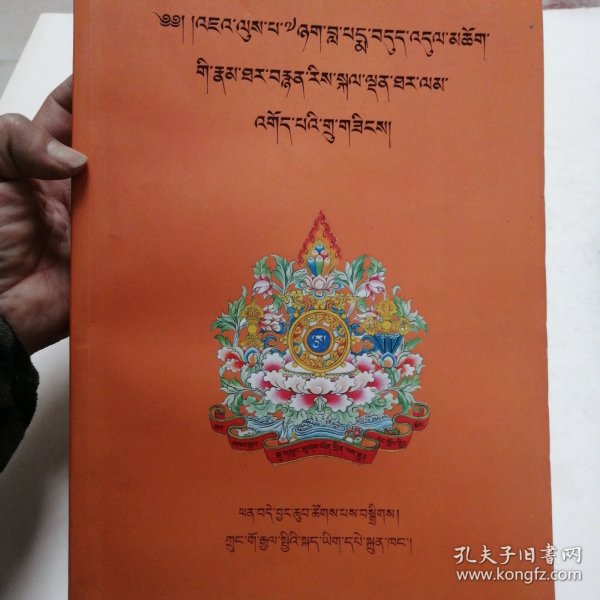 ༄༅། །འཇའ་ལུས་པ་ཉག་བླ་པདྨ་བདུད་འདུལ་མཆོག་
གི་རྣམ་ཐར་བརྙན་རིས་སྐལ་ལྡན་ཐར་ལམ་
འགོད་པའི་གྲུ་གཟིངས།
ཕན་བདེ་བྱང་ཆུབ་ཚོགས་པས་བསྒྲིགས།
ཀྲུང་གོ་རྒྱལ་སྤྱིའི་སྐད་ཡིག་དཔེ་སྐྲུན་ཁང་།
孔夫子旧书网
www.kongfz.com